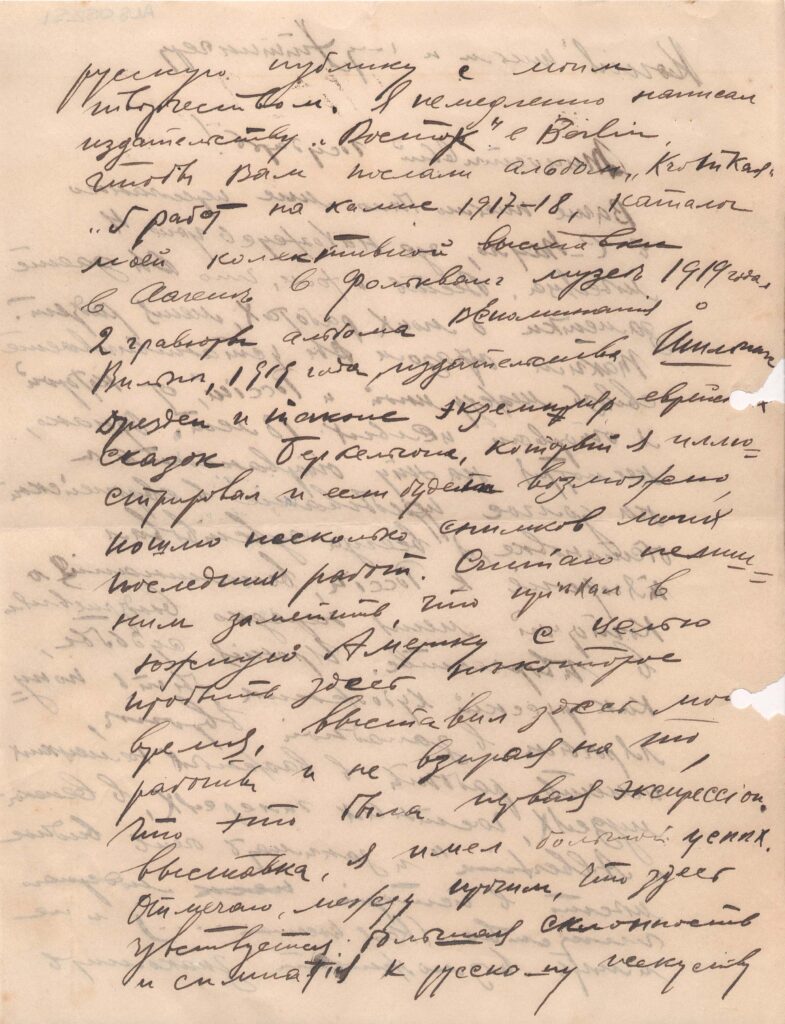 русскую публику с моим
творчеством. Я немедленно написал
издательству „Восток" в Berlin,
чтобы Вам послали альбом „Кроткая"
„5 работ на камне 1917-18, каталог
моей колективной выставки
в Гагене в Фолькванг музее 1919 года,
2 гравюры альбома воспоминания о
Вильны, 1919 года, издательства
Дрезден и также экземпляр еврейск
сказок который я иллю=
стрировал и если будет возможно,
пошлю несколько снимков моих
последних работ. Считаю
ним заметить, что приехал в
южную Америку с целью
пробыть здес некоторое
время, выставил здес мои
работы и не взирая на то,
что это была первая экспрессіон.
выставка, я имел большой успех.
Отмечаю, между прочим, что здес
чувствуется большая склонность
и симпатія к русскому искуству